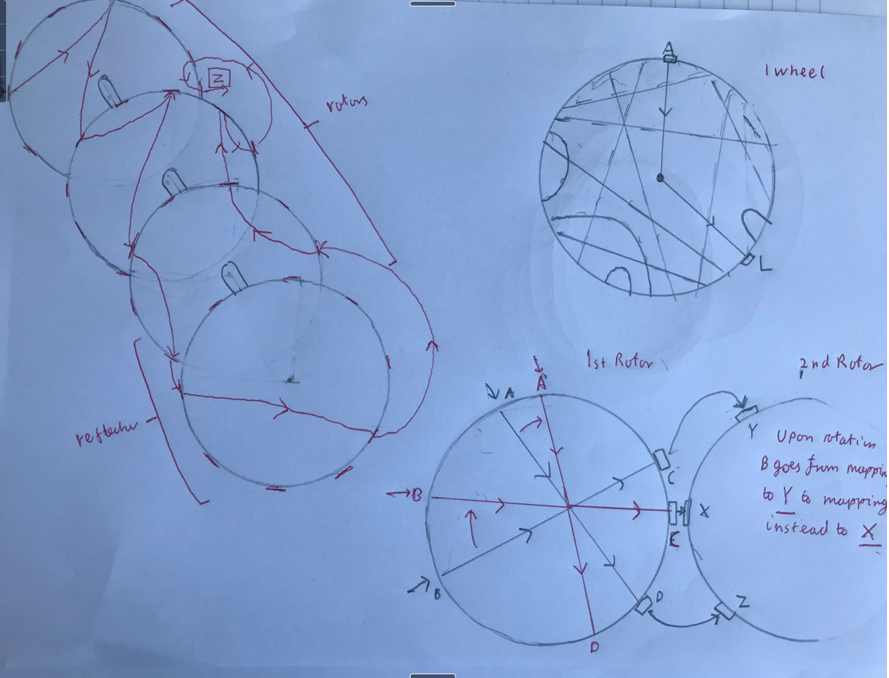 Z
rotors
reflector
A
1 wheel
L
1st Rotor
2nd Rotor
A
A
B
B
C
E
D
D
Y
X
Z
Upon rotation
B goes from
to Y to mapping
instead to X